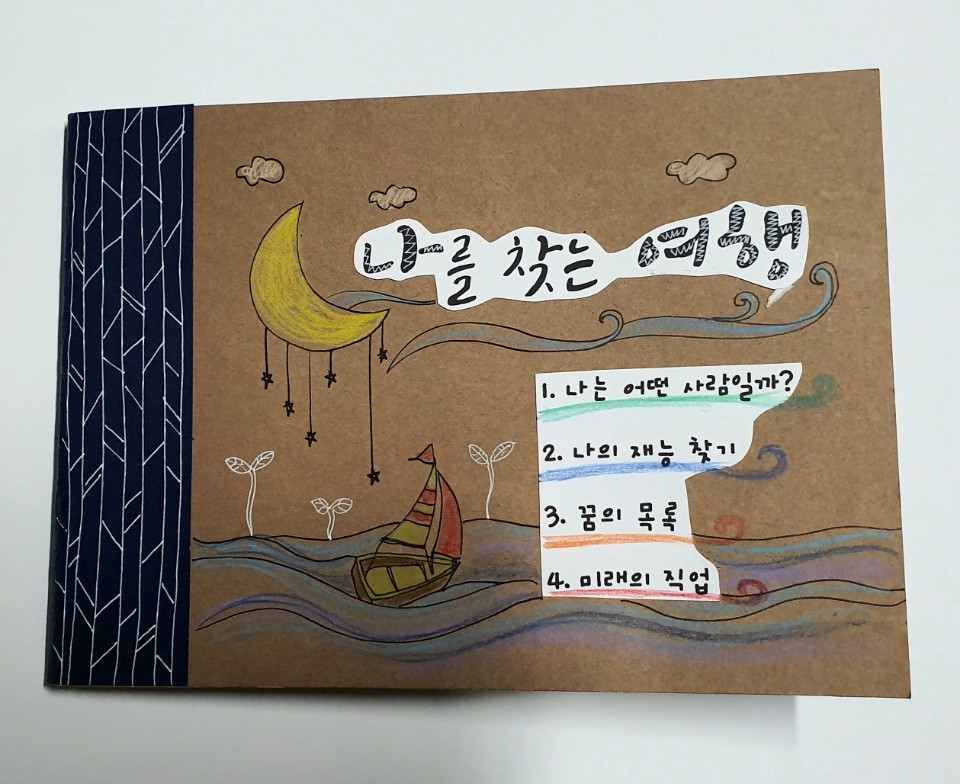 나를 찾는 여행
1. 나는 어떤 사람일까?
2. 나의 재능 찾기
3. 꿈의 목록
4. 미래의 직업